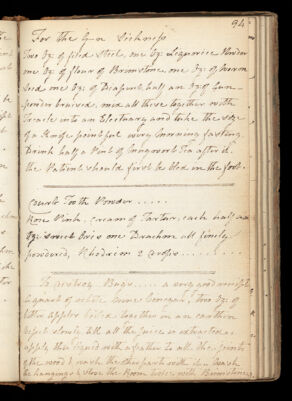 94
For the G n Sickness
Two oz: of filed Steel, one oz: Liquorice Powder
one oz: of flour of Brimstone, one oz: of
Seed one oz: of half an oz: of Gun-
powder bruised, mix all these together with
Treacle into an Electuary and take the size
of a every morning fasting.
Drink half a Pint of Mugwort Tea after it.
the Patient should first be bled in the foot.
Tooth Powder.....
Rose Pink, Cream of Tartar, each half an
oz: sweet Oris one Drachm all finely
powdered, Rhodium 2 drops......
To destroy Bugs..... a very good receipt
of white wine Vinegar, two oz: of
bitter apples boiled together in an earthen
slowly till all the Juice is extracted.
apply this liquid with a feather to all the joints
of the wood & wash the other parts with it. Wash
the hangings & the Room twice with Brimstone,